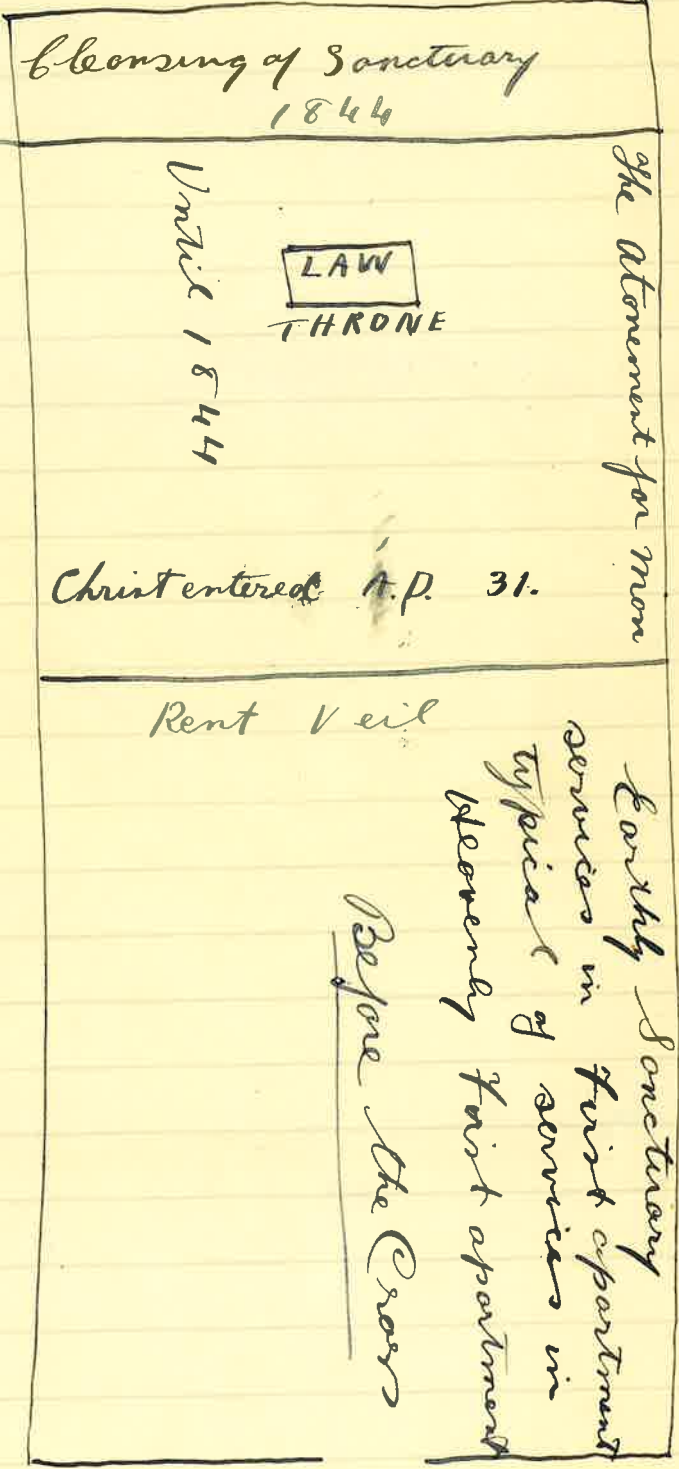 Cleansing of Sanctuary
1844
The Atonement for Man
Until 1844
LAW
THRONE
Christ entered A.D. 31.
Rent Veil
Earthly Sanctuary
services in First apartment
typical of services in
Heavenly First apartment
Before the Cross